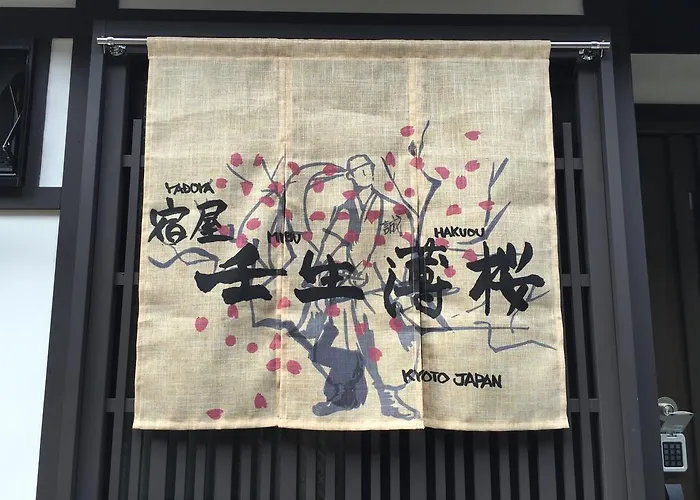 YADOYA
宿屋
MIBU HAKUOU
壬生薄桜
誠
KYOTO JAPAN